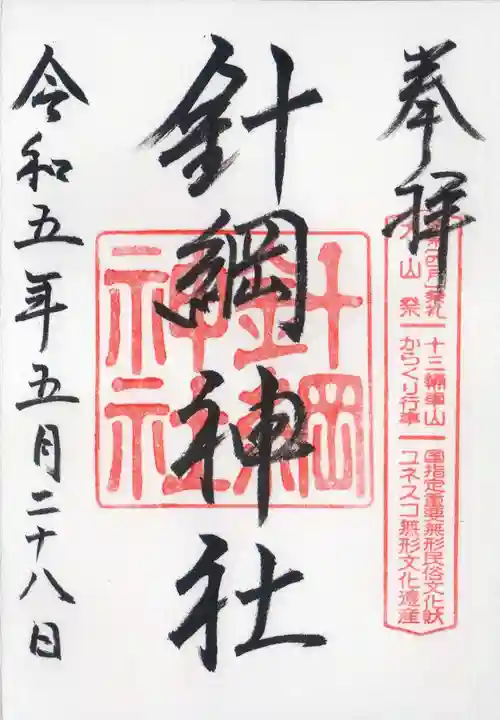 奉拝
犬山祭
十三輌車山
からくり行事
国指定重要無形民俗文化財
ユネスコ無形文化遺産
針綱神社
針綱神社
令和五年五月二十八日